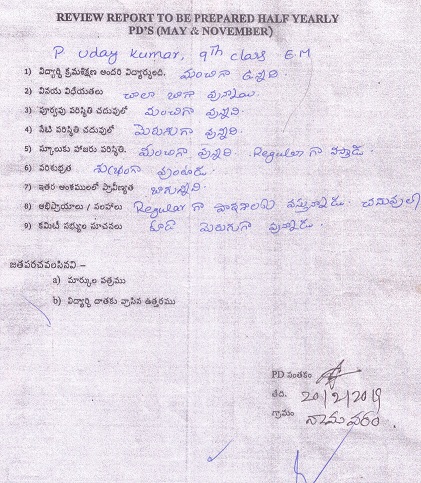 REVIEW REPORT TO BE PREPARED HALF YEARLY
PD'S (MAY & NOVEMBER)
P Uday Kumar, 9th class E.M
1) విద్యార్థి క్రమశిక్షణ అందరి విద్యార్థులది. మంచిగా ఉన్నది.
2) వినయ విధేయతలు చాలా బాగా వున్నాయి.
3) పూర్వపు పరిస్థితి చదువులో మంచిగా వున్నది.
4) నేటి పరిస్థితి చదువులో మెరుగుగా వున్నది.
5) స్కూలుకు హాజరు పరిస్థితి. మంచిగా వున్నది. Regular గా వస్తాడు.
6) పరిశుభ్రత శుభ్రంగా వుంటాడు.
7) ఇతర అంశములలో ప్రావీణ్యత బాగున్నది.
8) అభిప్రాయాలు / సలహాలు Regular గా పాఠశాలకు వస్తున్నాడు. చదువులో
9) కమిటీ సభ్యుల సూచనలు కూడా మెరుగుగా వున్నాడు.
జతపరచవలసినవి –
a) మార్కుల పత్రము
b) విద్యార్థి దాతకు వ్రాసిన ఉత్తరము
PD సంతకం
తేది. 20/2/2019
గ్రామం